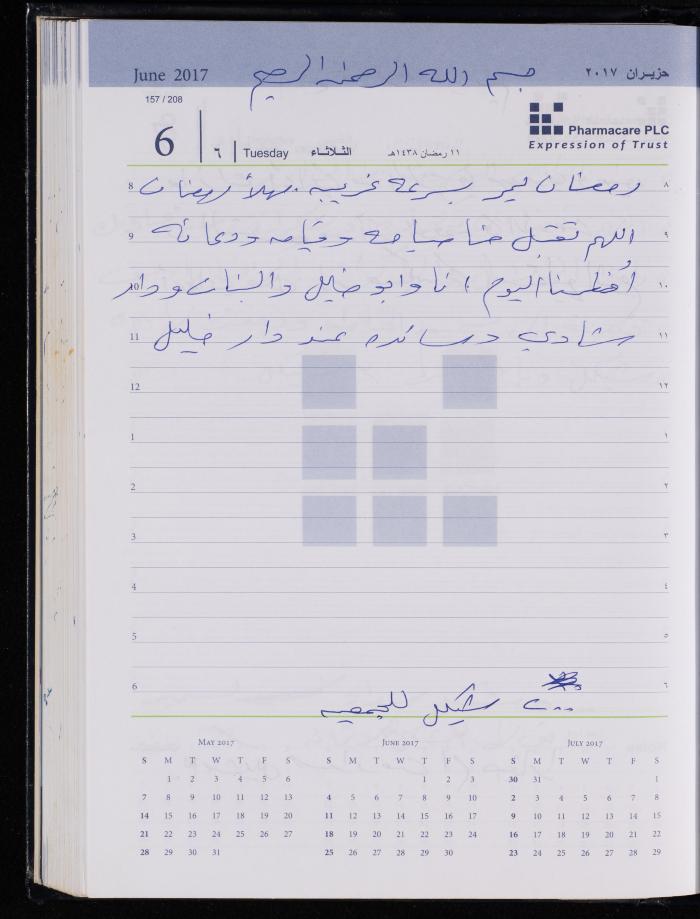 June 2017 بسم الله الرحمن الرحيم حزيـران ٢٠١٧
157 / 208
6 ٦ Tuesday الثـلاثـاء ١١ رمضان ١٤٣٨هـ
Pharmacare PLC
Expression of Trust
8 رمضان يمر بسرعة غريبه. مهلاً رمضان ٨
9 اللهم تقبل منا صيامه وقيامه ودعائه ٩
10 أفطرنا اليوم انا وابو خليل والبنات ودار ١٠
11 شادي وسائده عند دار خليل ١١
12 ١٢
1 ١
2 ٢
3 ٣
4 ٤
5 ٥
6 ٦
٢٠٠ شيكل للجمعيه
May 2017
S M T W T F S
1 2 3 4 5 6
7 8 9 10 11 12 13
14 15 16 17 18 19 20
21 22 23 24 25 26 27
28 29 30 31
June 2017
S M T W T F S
1 2 3
4 5 6 7 8 9 10
11 12 13 14 15 16 17
18 19 20 21 22 23 24
25 26 27 28 29 30
July 2017
S M T W T F S
30 31 1
2 3 4 5 6 7 8
9 10 11 12 13 14 15
16 17 18 19 20 21 22
23 24 25 26 27 28 29